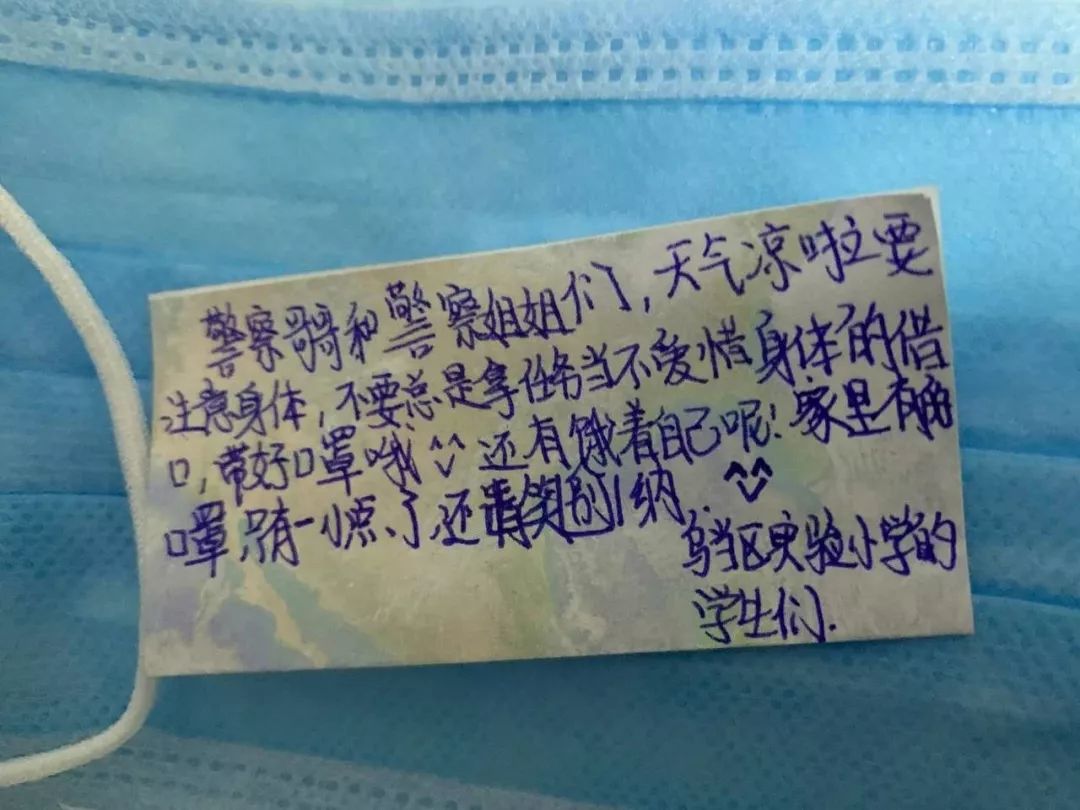 警察哥哥和警察姐姐们，天气凉啦要
注意身体，不要总是拿任务当不爱惜身体的借
口，带好口罩哦^^还有饿着自己呢！家里有的口
罩，只有一小点了，还请笑纳.^^
乌当区实验小学的
学生们.